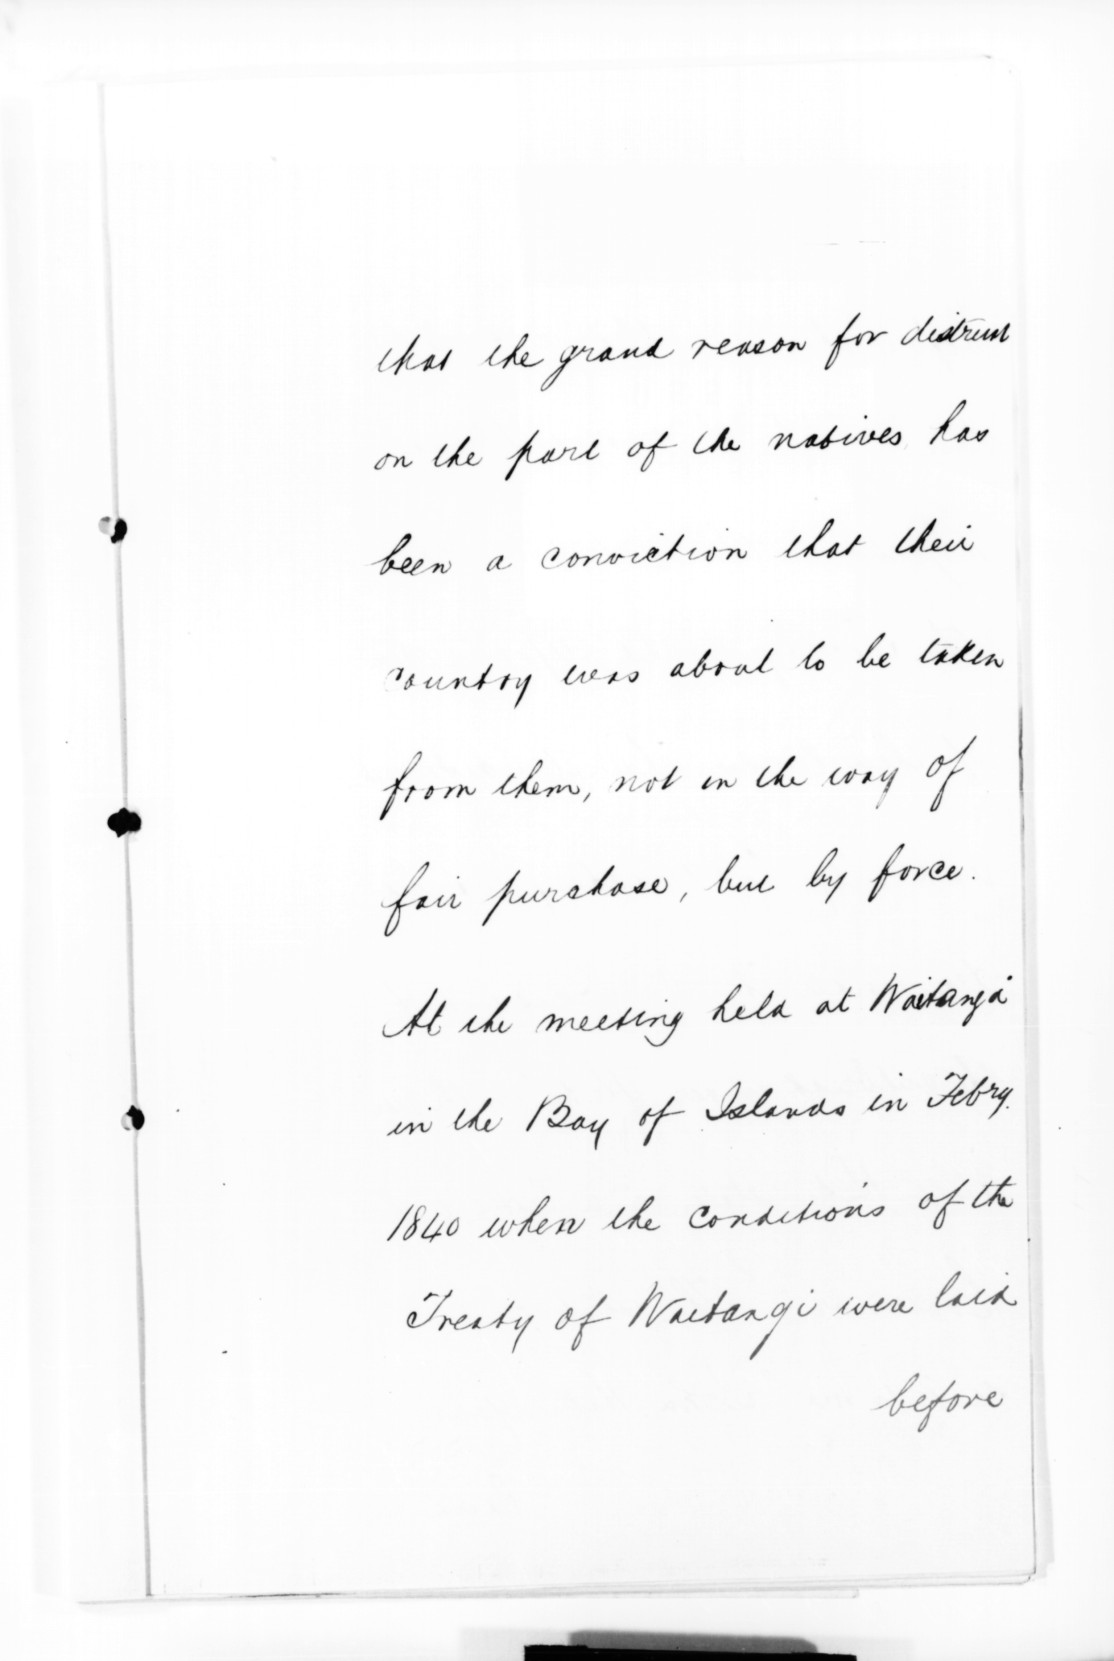 that the grand reason for distrust
on the part of the natives has
been a conviction that their
country was about to be taken
from them, not in the way of
fair purchase, but by force.
At the meeting held at Waitangi
in the Bay of Islands in Febry.
1840 when the conditions of the
Treaty of Waitangi were laid
before